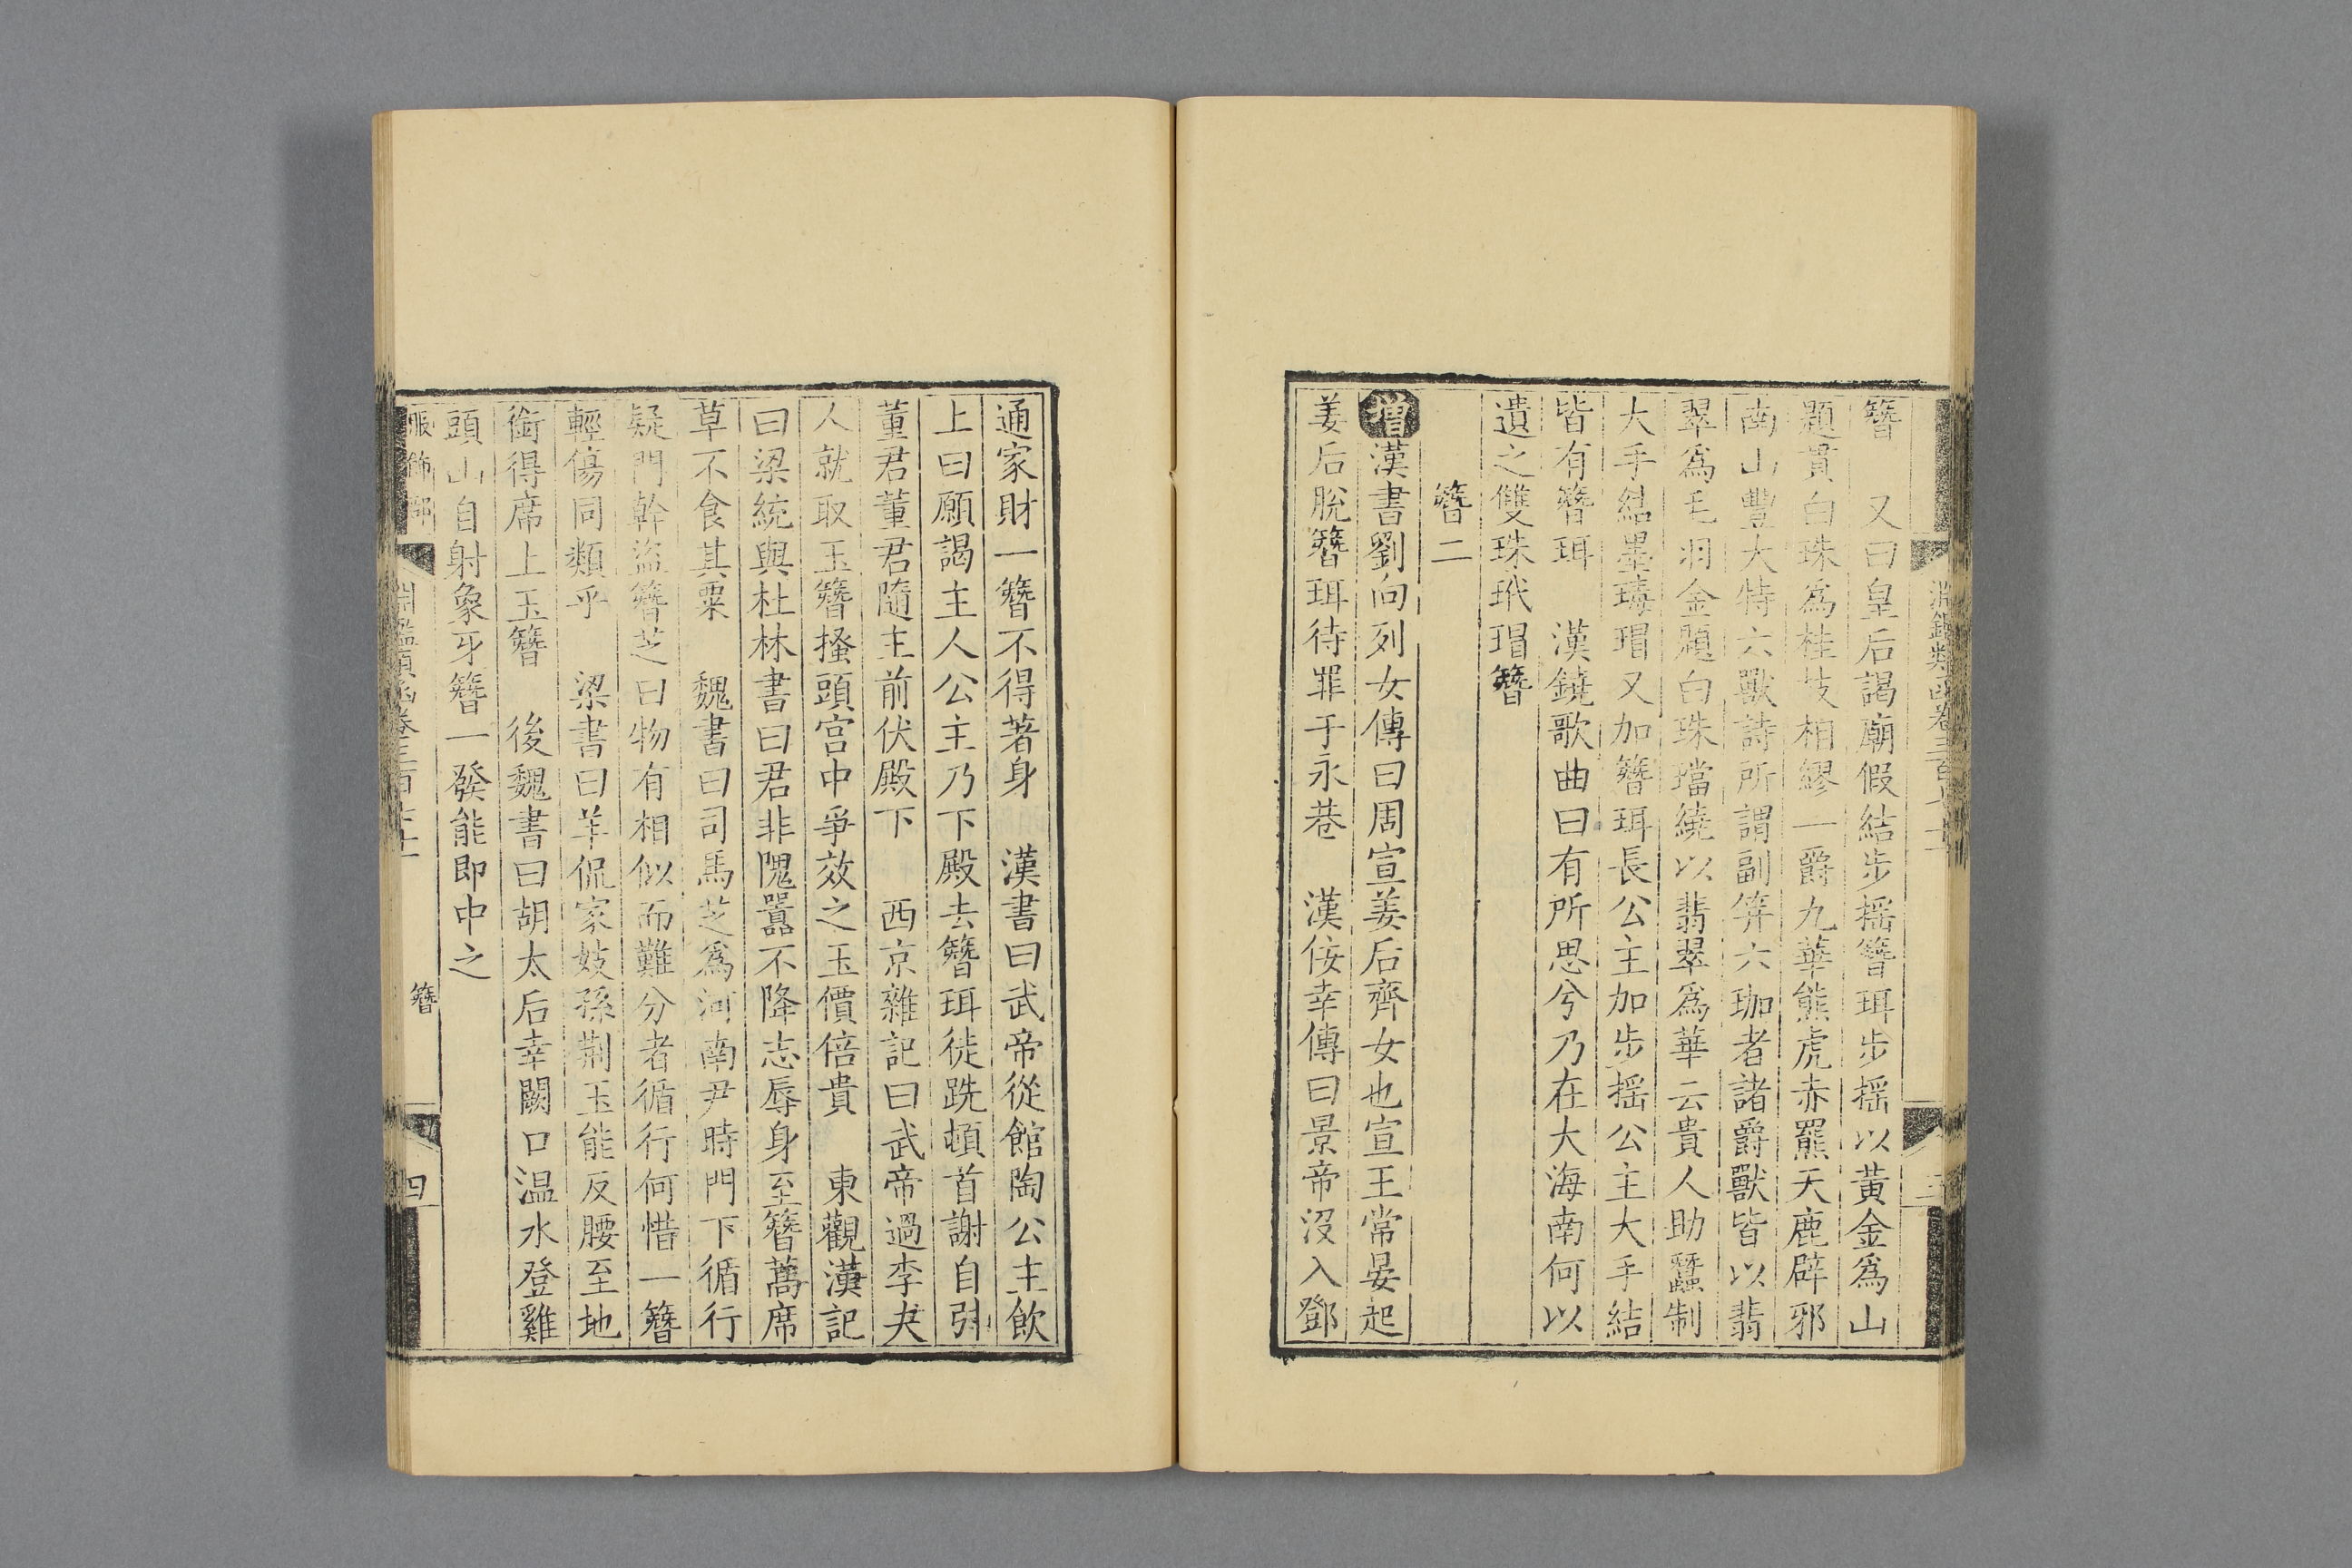 簪　又曰皇后謁廟假結步摇簪珥步摇以黃金爲山
題貫白珠爲桂枝相繆一爵九華熊虎赤羆天鹿辟邪
南山豐大特六獸詩所謂副笄六珈者諸爵獸皆以翡
翠爲毛羽金題白珠璫繞以翡翠爲華云貴人助蠶制
大手結墨瑇瑁又加簪珥長公主加步摇公主大手結
皆有簪珥　漢鐃歌曲曰有所思兮乃在大海南何以
遺之雙珠玳瑁簪
簪二
增漢書劉向列女傳曰周宣姜后齊女也宣王常晏起
姜后脫簪珥待罪于永巷　漢佞幸傳曰景帝沒入鄧
通家財一簪不得著身　漢書曰武帝從館陶公主飲
上曰願謁主人公主乃下殿去簪珥徒跣頓首謝自引
董君董君隨主前伏殿下　西京雜記曰武帝過李夫
人就取玉簪搔頭宮中爭效之玉價倍貴　東觀漢記
曰梁統與杜林書曰君非隗囂不降志辱身至簪蒿席
草不食其粟　魏書曰司馬芝爲河南尹時門下循行
疑門幹盜簪芝曰物有相似而難分者循行何惜一簪
輕傷同類乎　梁書曰羊侃家妓孫荆玉能反腰至地
銜得席上玉簪　後魏書曰胡太后幸闕口温水登雞
頭山自射象牙簪一發能即中之
服飾部
淵鑑類函卷三百
簪
四